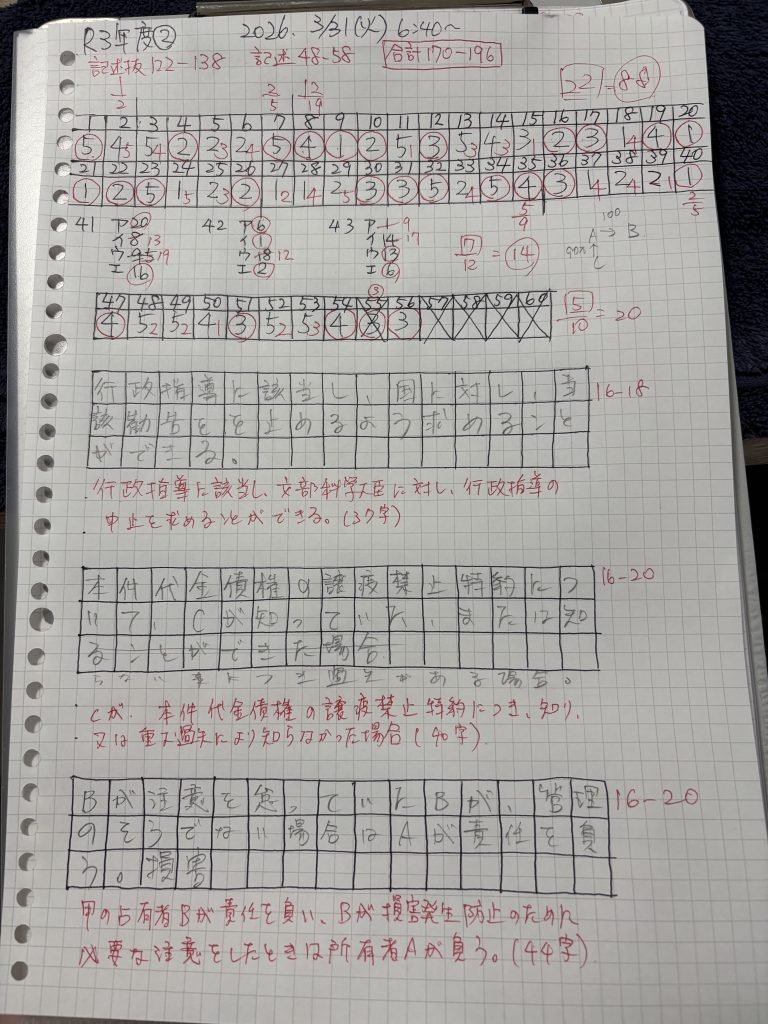 R3年度② 2026. 3/31(火) 6:40〜
記述抜 122-138 記述 48-58 合計170-196
1/2 2/5 12/19 22 = 88
1 2 3 4 5 6 7 8 9 10 11 12 13 14 15 16 17 18 19 20
5 45 54 2 23 24 5 4 1 2 51 3 53 43 31 2 3 14 4 1
21 22 23 24 25 26 27 28 29 30 31 32 33 34 35 36 37 38 39 40
1 2 5 15 23 2 12 14 25 3 3 5 24 5 4 3 14 24 21 1
5/9 2/5
41 ア20 42 ア6 43 ア 9
イ8 13 イ1 イ14 17
ウ 19 ウ18 12 ウ13
エ16 エ2 エ6
7/12 = 14
100
A → B
C
47 48 49 50 51 52 53 54 55 56 57 58 59 60
4 52 52 41 3 52 53 4 3 3
5/10 = 20
行政指導に該当し、国に対し、当
該勧告をを止めるよう求めること
ができる。
16-18
行政指導に該当し、文部科学大臣に対し、行政指導の
中止を求めることができる。(37字)
本件代金債権の譲渡禁止特約につ
いて、Cが知っていた、または知
ることができた場合
らないことにつき過失がある場合。
16-20
Cが、本件代金債権の譲渡禁止特約につき、知り、
又は重な過失により知らなかった場合(40字)
Bが注意を怠っていたBが、管理
のそうでない場合はAが責任を負
う。損害
16-20
甲の占有者Bが責任を負い、Bが損害発生防止のために
必要な注意をしたときは所有者Aが負う。(44字)